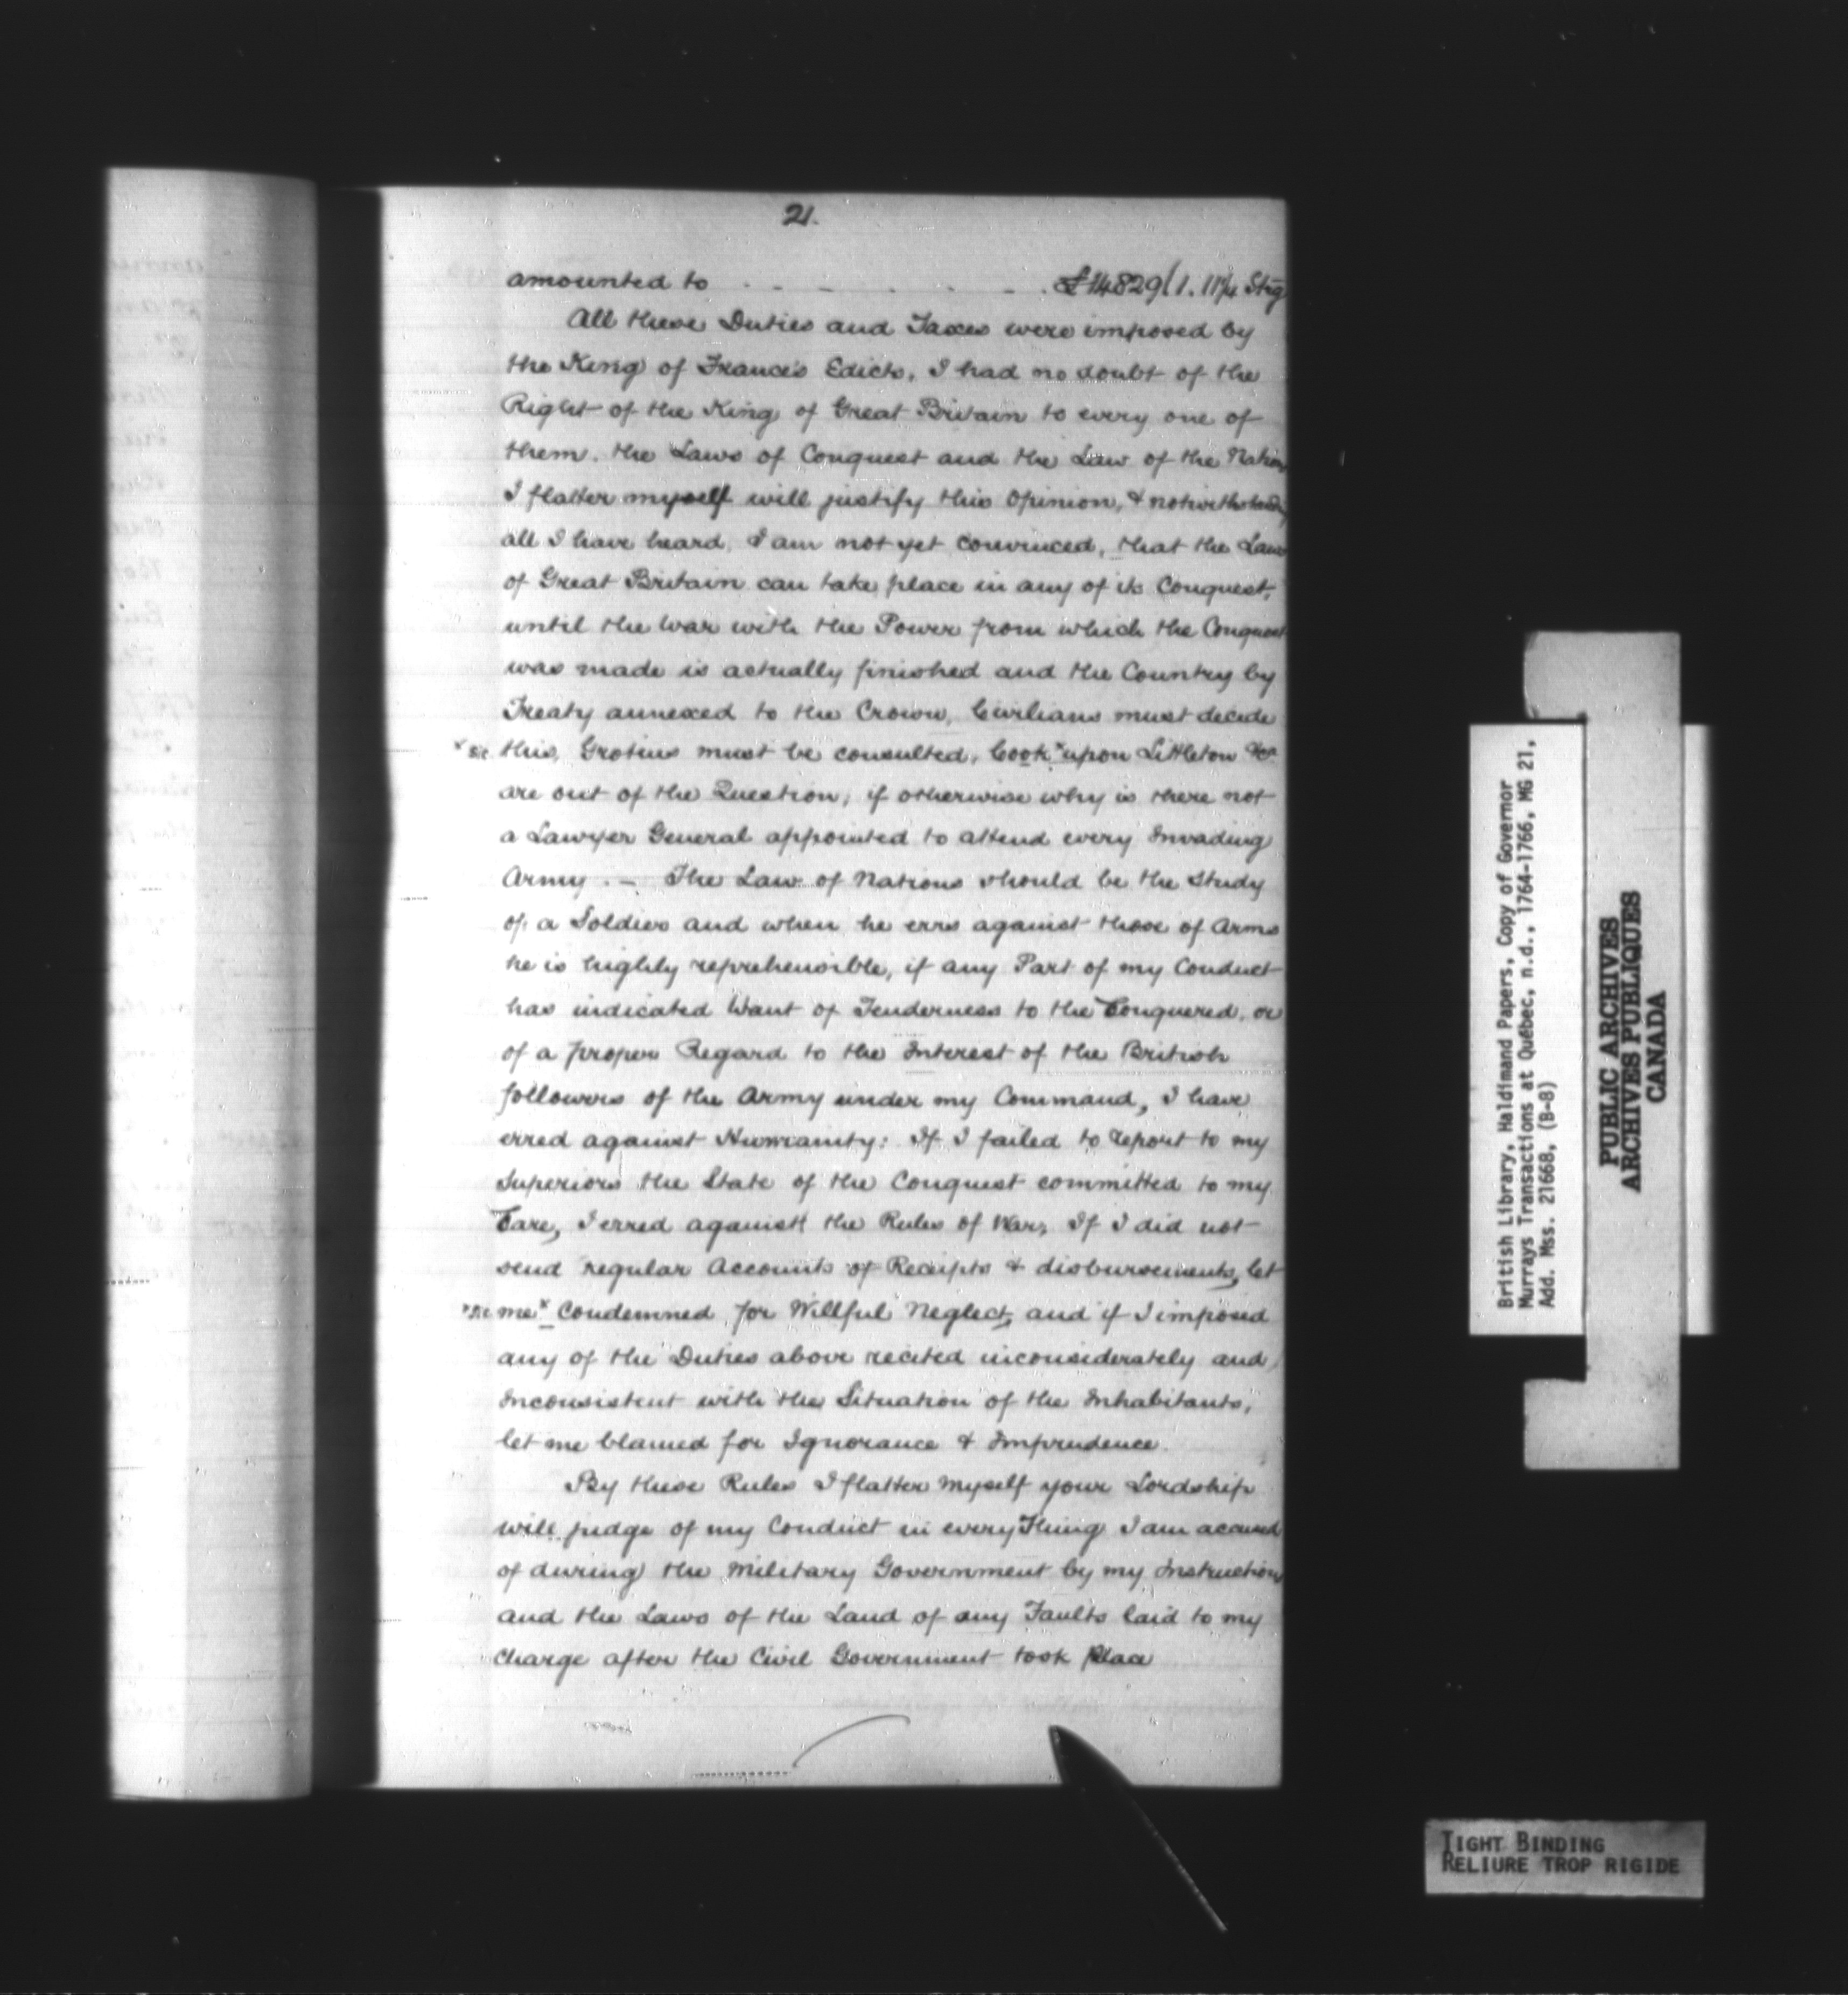 21.
amounted to . . . . . . . £14829(1. 11¼ Stg
All these Duties and Taxes were imposed by
the King of France's Edicts, I had no doubt of the
Right of the King of Great Britain to every one of
them. the Laws of Conquest and the Law of the Nation
I flatter myself will justify this Opinion, & notwithstanding
all I have heard, I am not yet convinced, that the Laws
of Great Britain can take place in any of its Conquest,
until the War with the Power from which the Conquest
was made is actually finished and the Country by
Treaty annexed to the Crown, Civilians must decide
x sic this, Grotius must be consulted, Cook x upon Littleton &ca
are out of the Question, if otherwise why is there not
a Lawyer General appointed to attend every Invading
Army. — The Law of Nations should be the Study
of a Soldier and when he errs against those of Arms
he is highly reprehensible, if any Part of my Conduct
has indicated Want of Tenderness to the Conquered, or
of a proper Regard to the Interest of the British
followers of the Army under my Command, I have
erred against Humanity: If I failed to report to my
Superiors the State of the Conquest committed to my
Care, I erred against the Rules of War, If I did not
send regular Accounts of Receipts & disbursements, let
x sic me x Condemned for Willful Neglect, and if I imposed
any of the Duties above recited inconsiderately and,
Inconsistent with the Situation of the Inhabitants,
let me blamed for Ignorance & Imprudence.
By these Rules I flatter myself your Lordship
will judge of my Conduct in every Thing I am accused
of during the Military Government by my Instruction
and the Laws of the Land of any Faults laid to my
Charge after the Civil Government took place
British Library, Haldimand Papers, Copy of Governor
Murrays Transactions at Québec, n.d., 1764-1766, MG 21,
Add. Mss. 21668, (B-8)
PUBLIC ARCHIVES
ARCHIVES PUBLIQUES
CANADA
TIGHT BINDING
RELIURE TROP RIGIDE